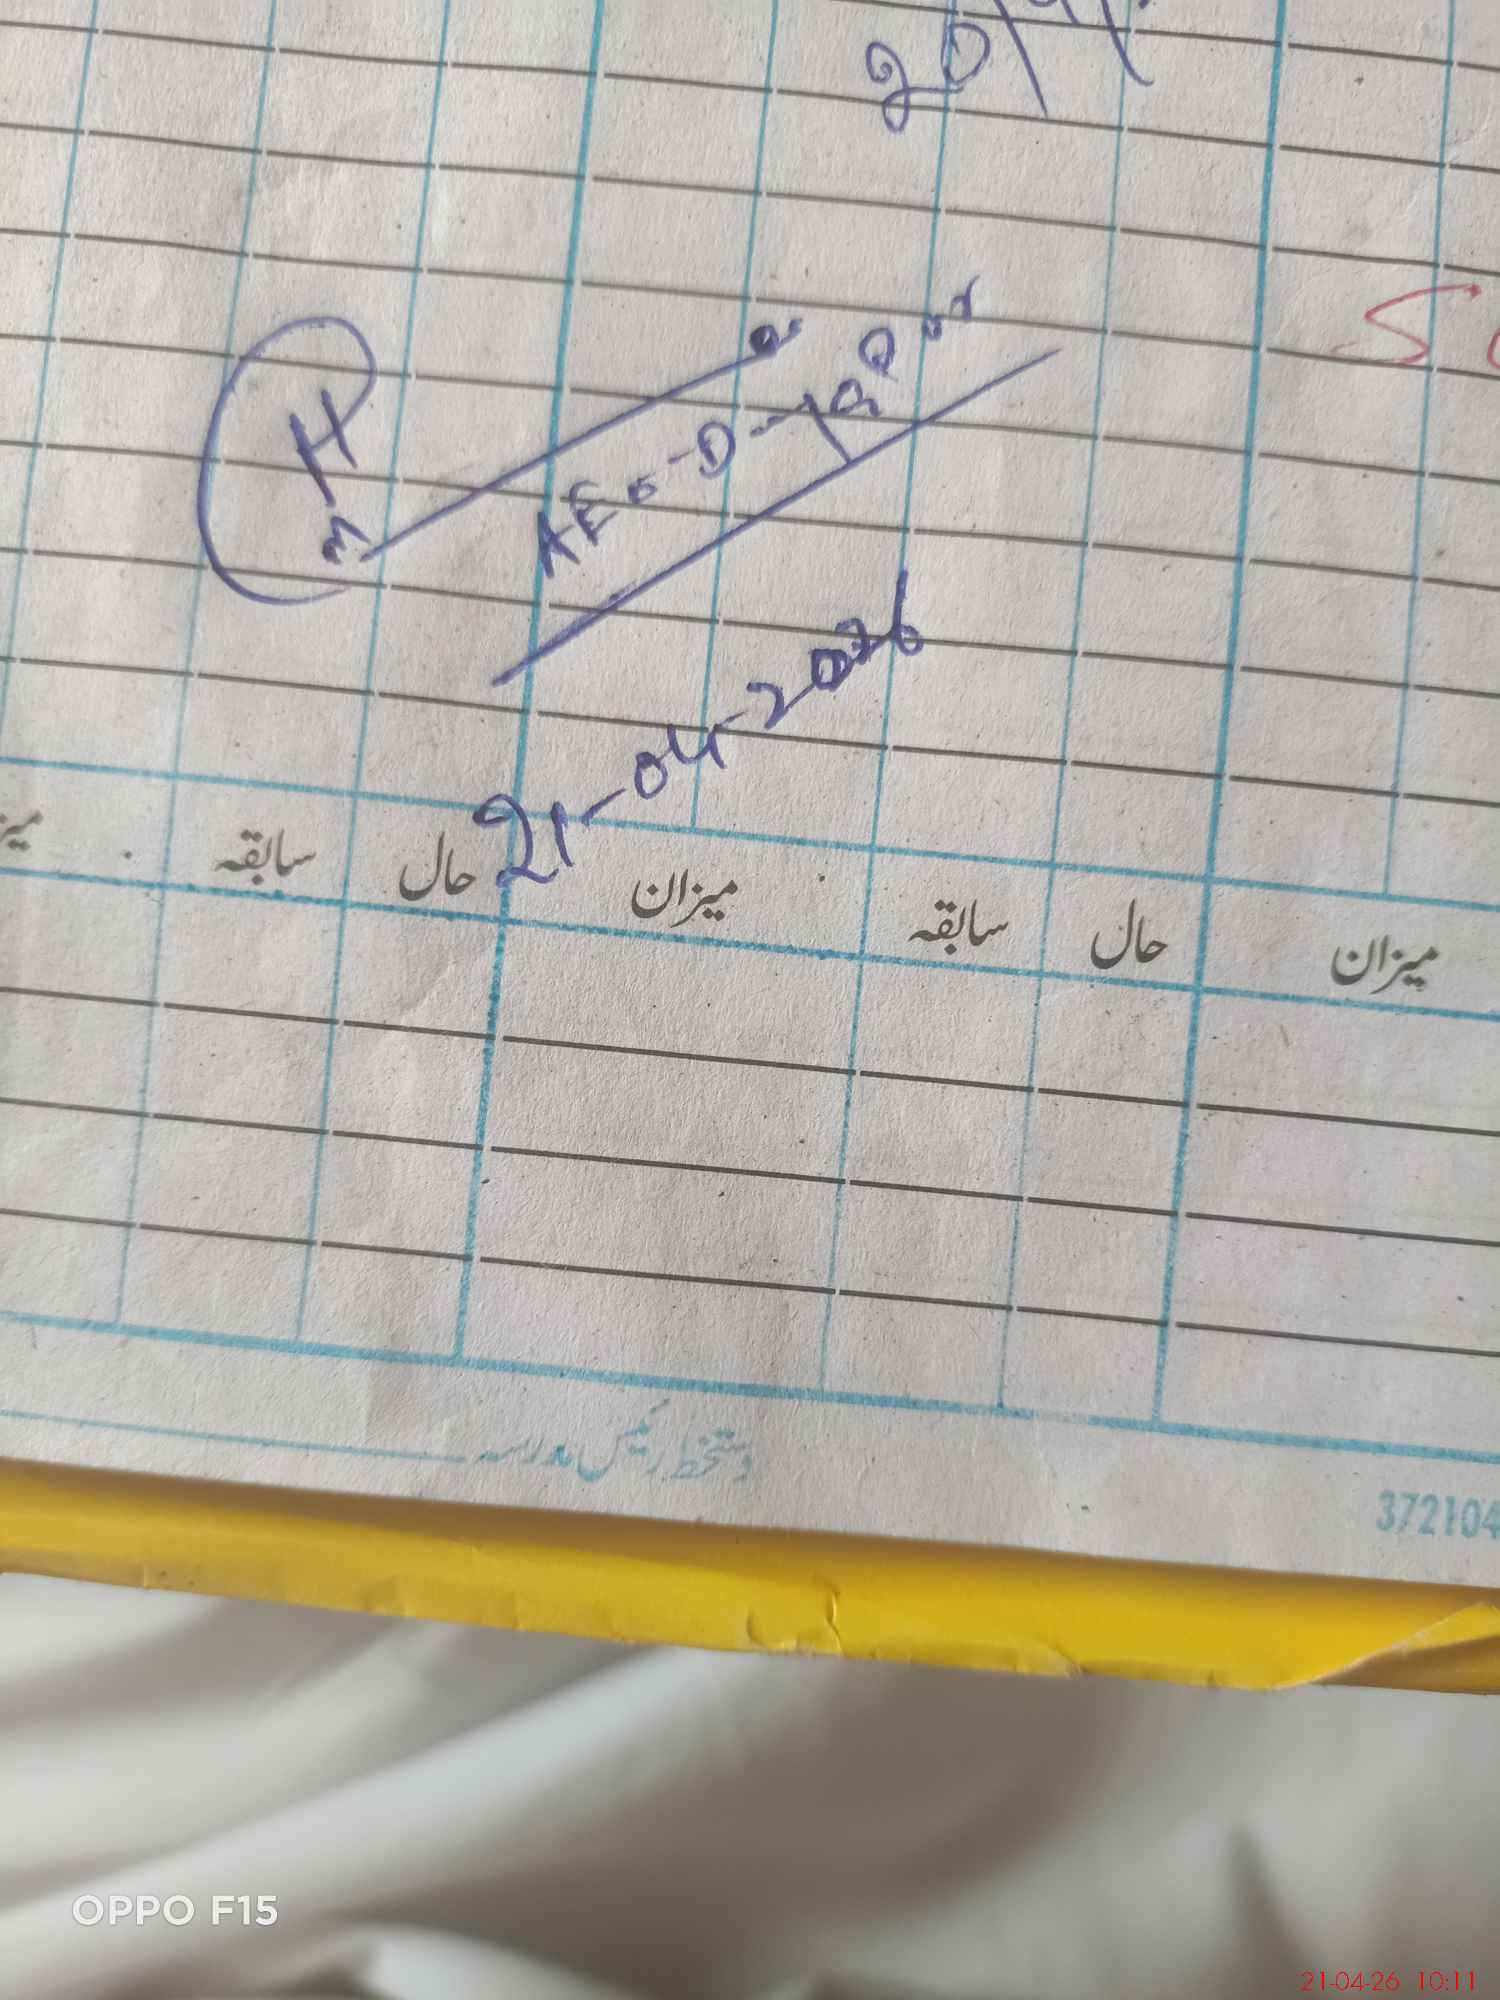 20/4/
S
H
AEo-D-
21-04-2026
سابقہ حال میزان سابقہ حال میزان
دستخط رئیس مدرسہ
372104
OPPO F15
21-04-26 10:11